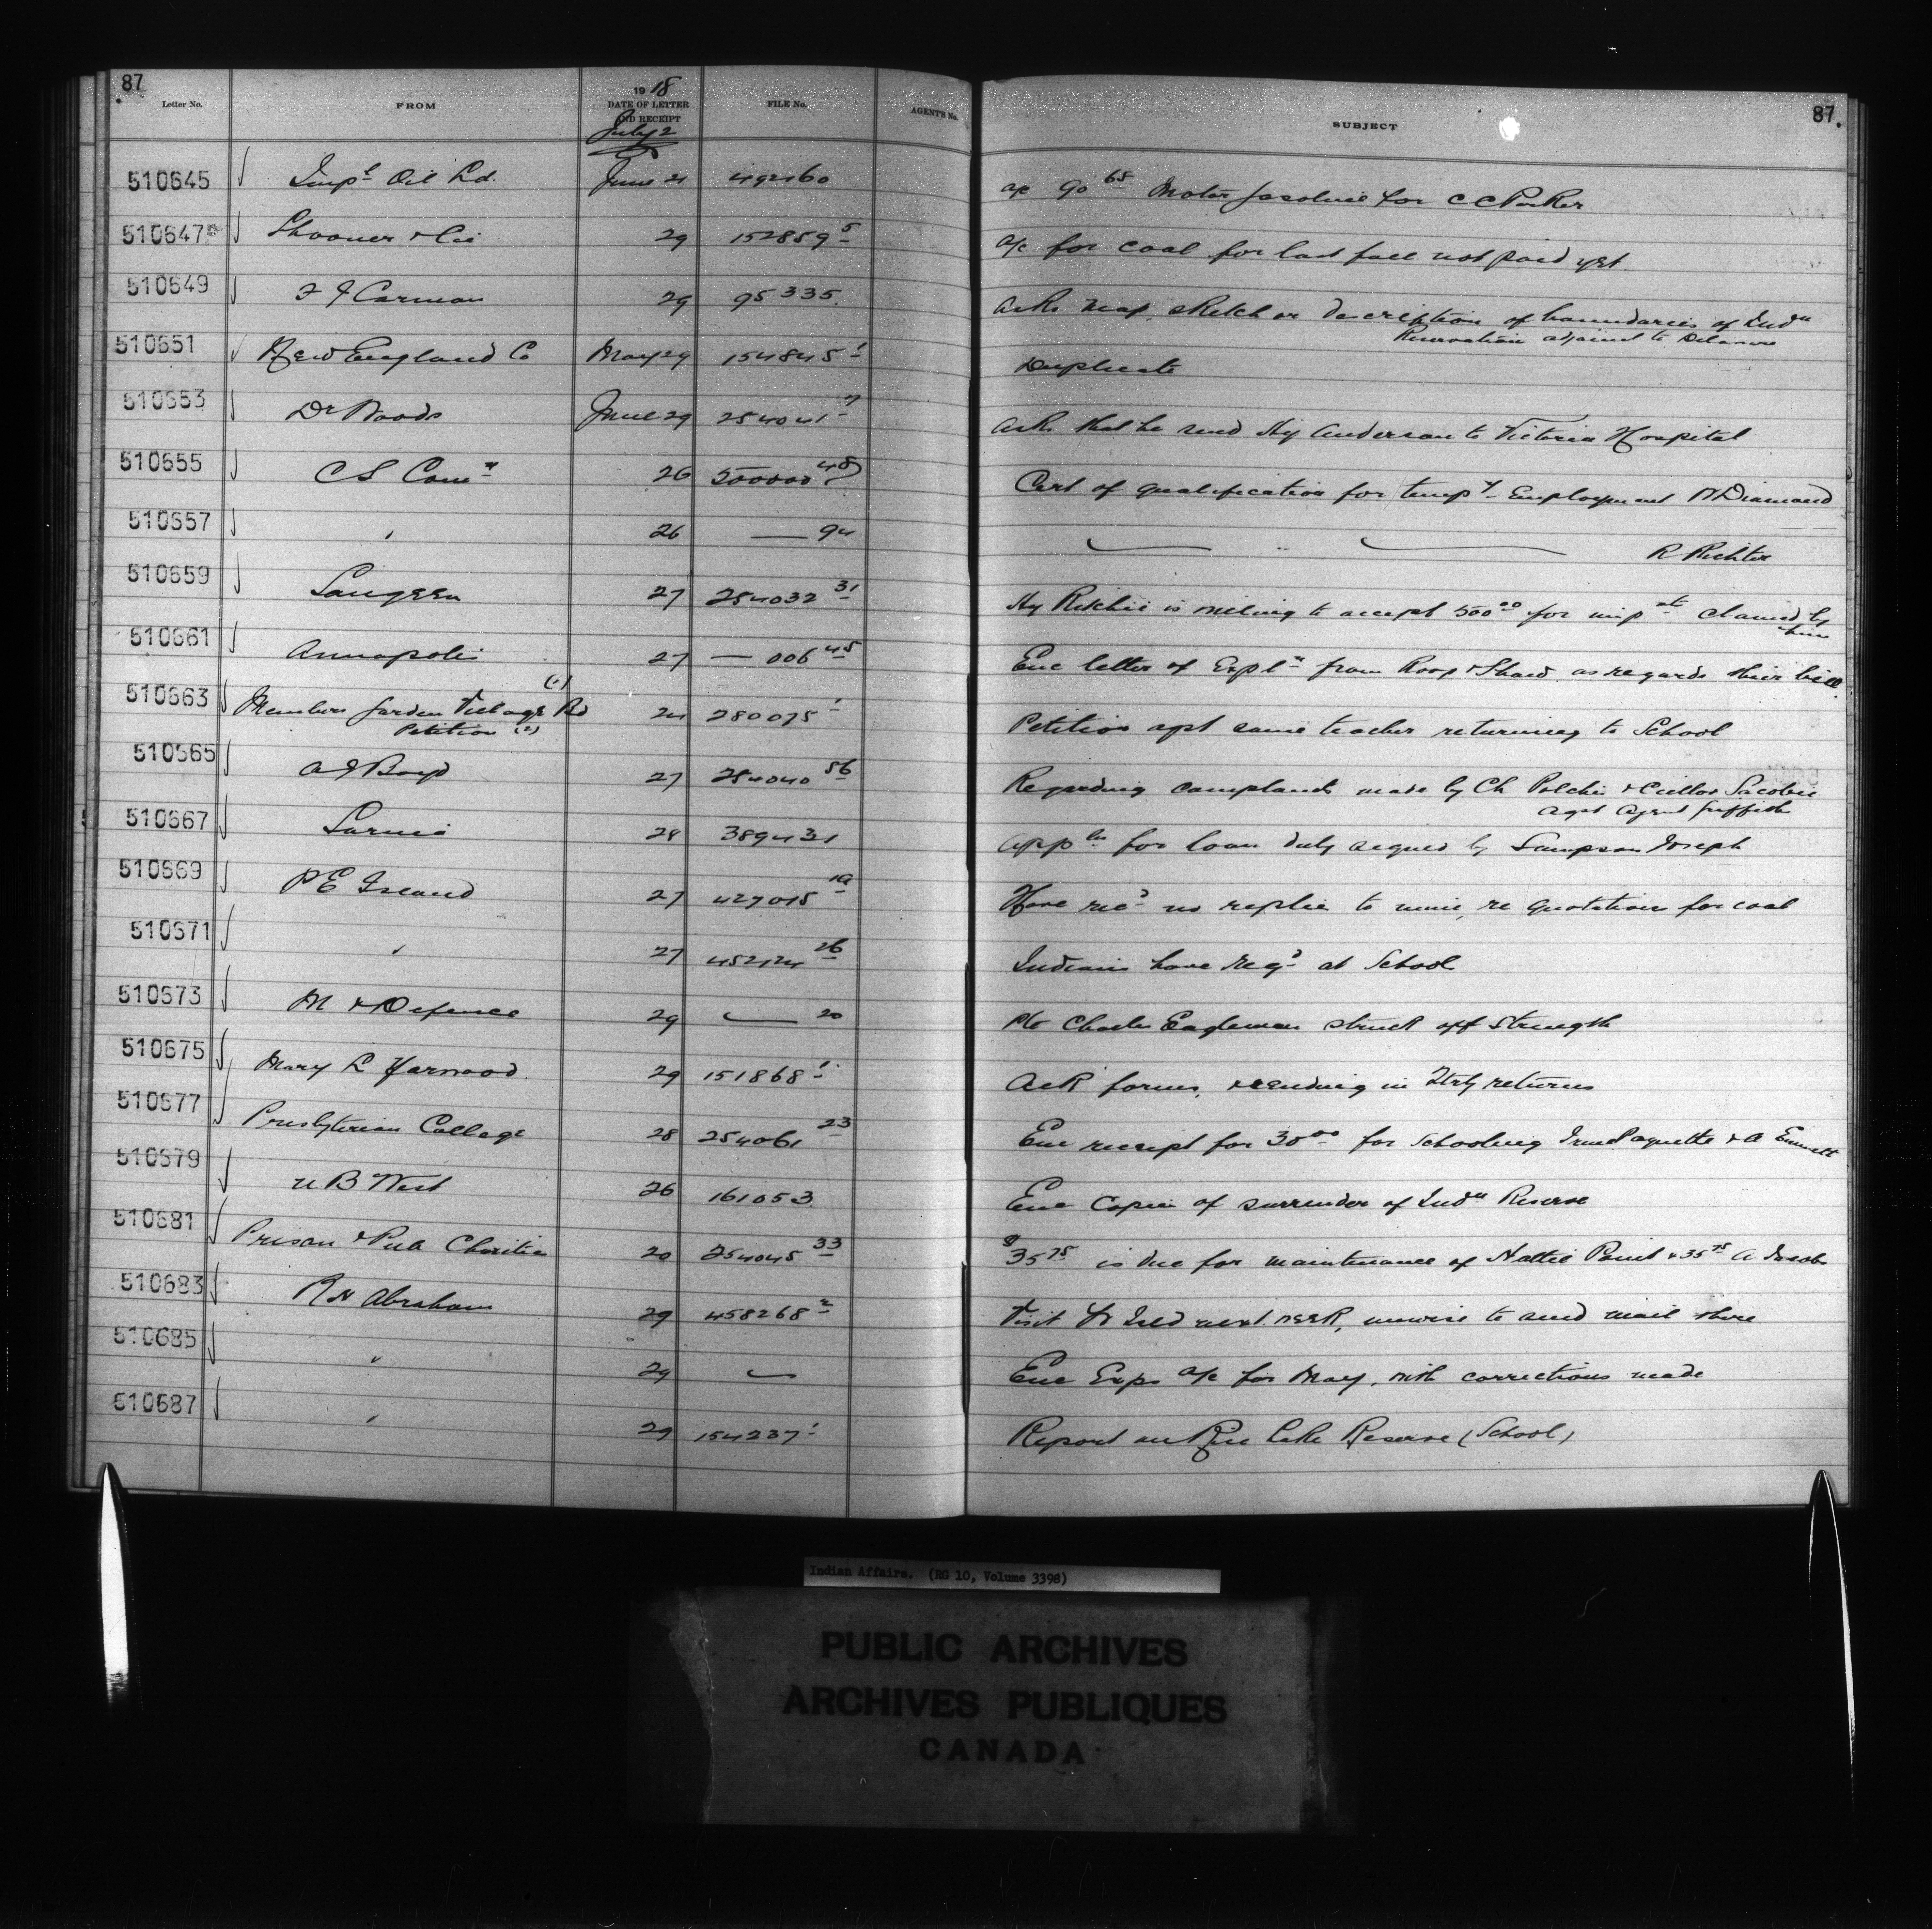 87
87.
Letter No.
FROM
19 18
DATE OF LETTER
AND RECEIPT
July 2
FILE No.
AGENT'S No.
SUBJECT
510645 Imp^l Oil Ld. June 21 492460 a/c 90^65 Motor Gasoline for C C Parker
510647 Shooner & Cie 29 152859^5 a/c for coal for last fall not paid yet.
510649 F J Carman 29 95335. Asks map, sketch or description of boundaries of Ind^n
Reservation adjacent to Delaware
510651 New England Co May 29 154845^1 Duplicate
510653 Dr Woods June 29 254041^7 Asks that he send Hy Anderson to Victoria Hospital
510655 C S Com^n 26 500000^48 Cert of qualification for temp^y Employment W Diamond
510657 " 26 — 94 " R Richter
510659 Saugeen 27 254032^31 Hy Ritchie is willing to accept 500^00 for imp^ts claimed by
him
510661 Annapolis 27 — 006^45 Enc letter of Expl^n from Roop & Shaw as regards their bill
510663 Members Garden Village Bd (1) 24 280075^1 Petition agst same teacher returning to School
Petition (2)
510665 A J Boyd 27 254040^56 Regarding complaints made by Ch Polchie & Cncllor Sacobie
agst Agent Griffith
510667 Sarnia 28 389431 App^ln for loan duly signed by Sampson Joseph
510669 P E Island 27 427015^1A Have rec^d no replies to mine, re quotations for coal
510671 " 27 452124^26 Indians have reg^d at School
510673 M & Defence 29 — 20 Pte Charles Eagleman struck off strength
510675 Mary L Harwood. 29 151868^1 Ask forms, & sending in Qtrly returns
510677 Presbyterian College 28 254061^23 Enc receipt for 30^00 for schooling Paquette & A Emmett
510679 U B West 26 161053. Enc Copies of surrender of Ind^n Reserve
510681 Prison & Pub Charities 20 254045^33 $35^75 is due for maintenance of Hattie Point & 35^75 A Jacobs
510683 R H Abraham 29 458268^2 Visit next week, unwise to send mail there
510685 " 29 — Enc Exps a/c for May, with corrections made
510687 " 29 154237^1 Report on Rice Lake Reserve (School)
Indian Affairs. (RG 10, Volume 3398)
PUBLIC ARCHIVES
ARCHIVES PUBLIQUES
CANADA